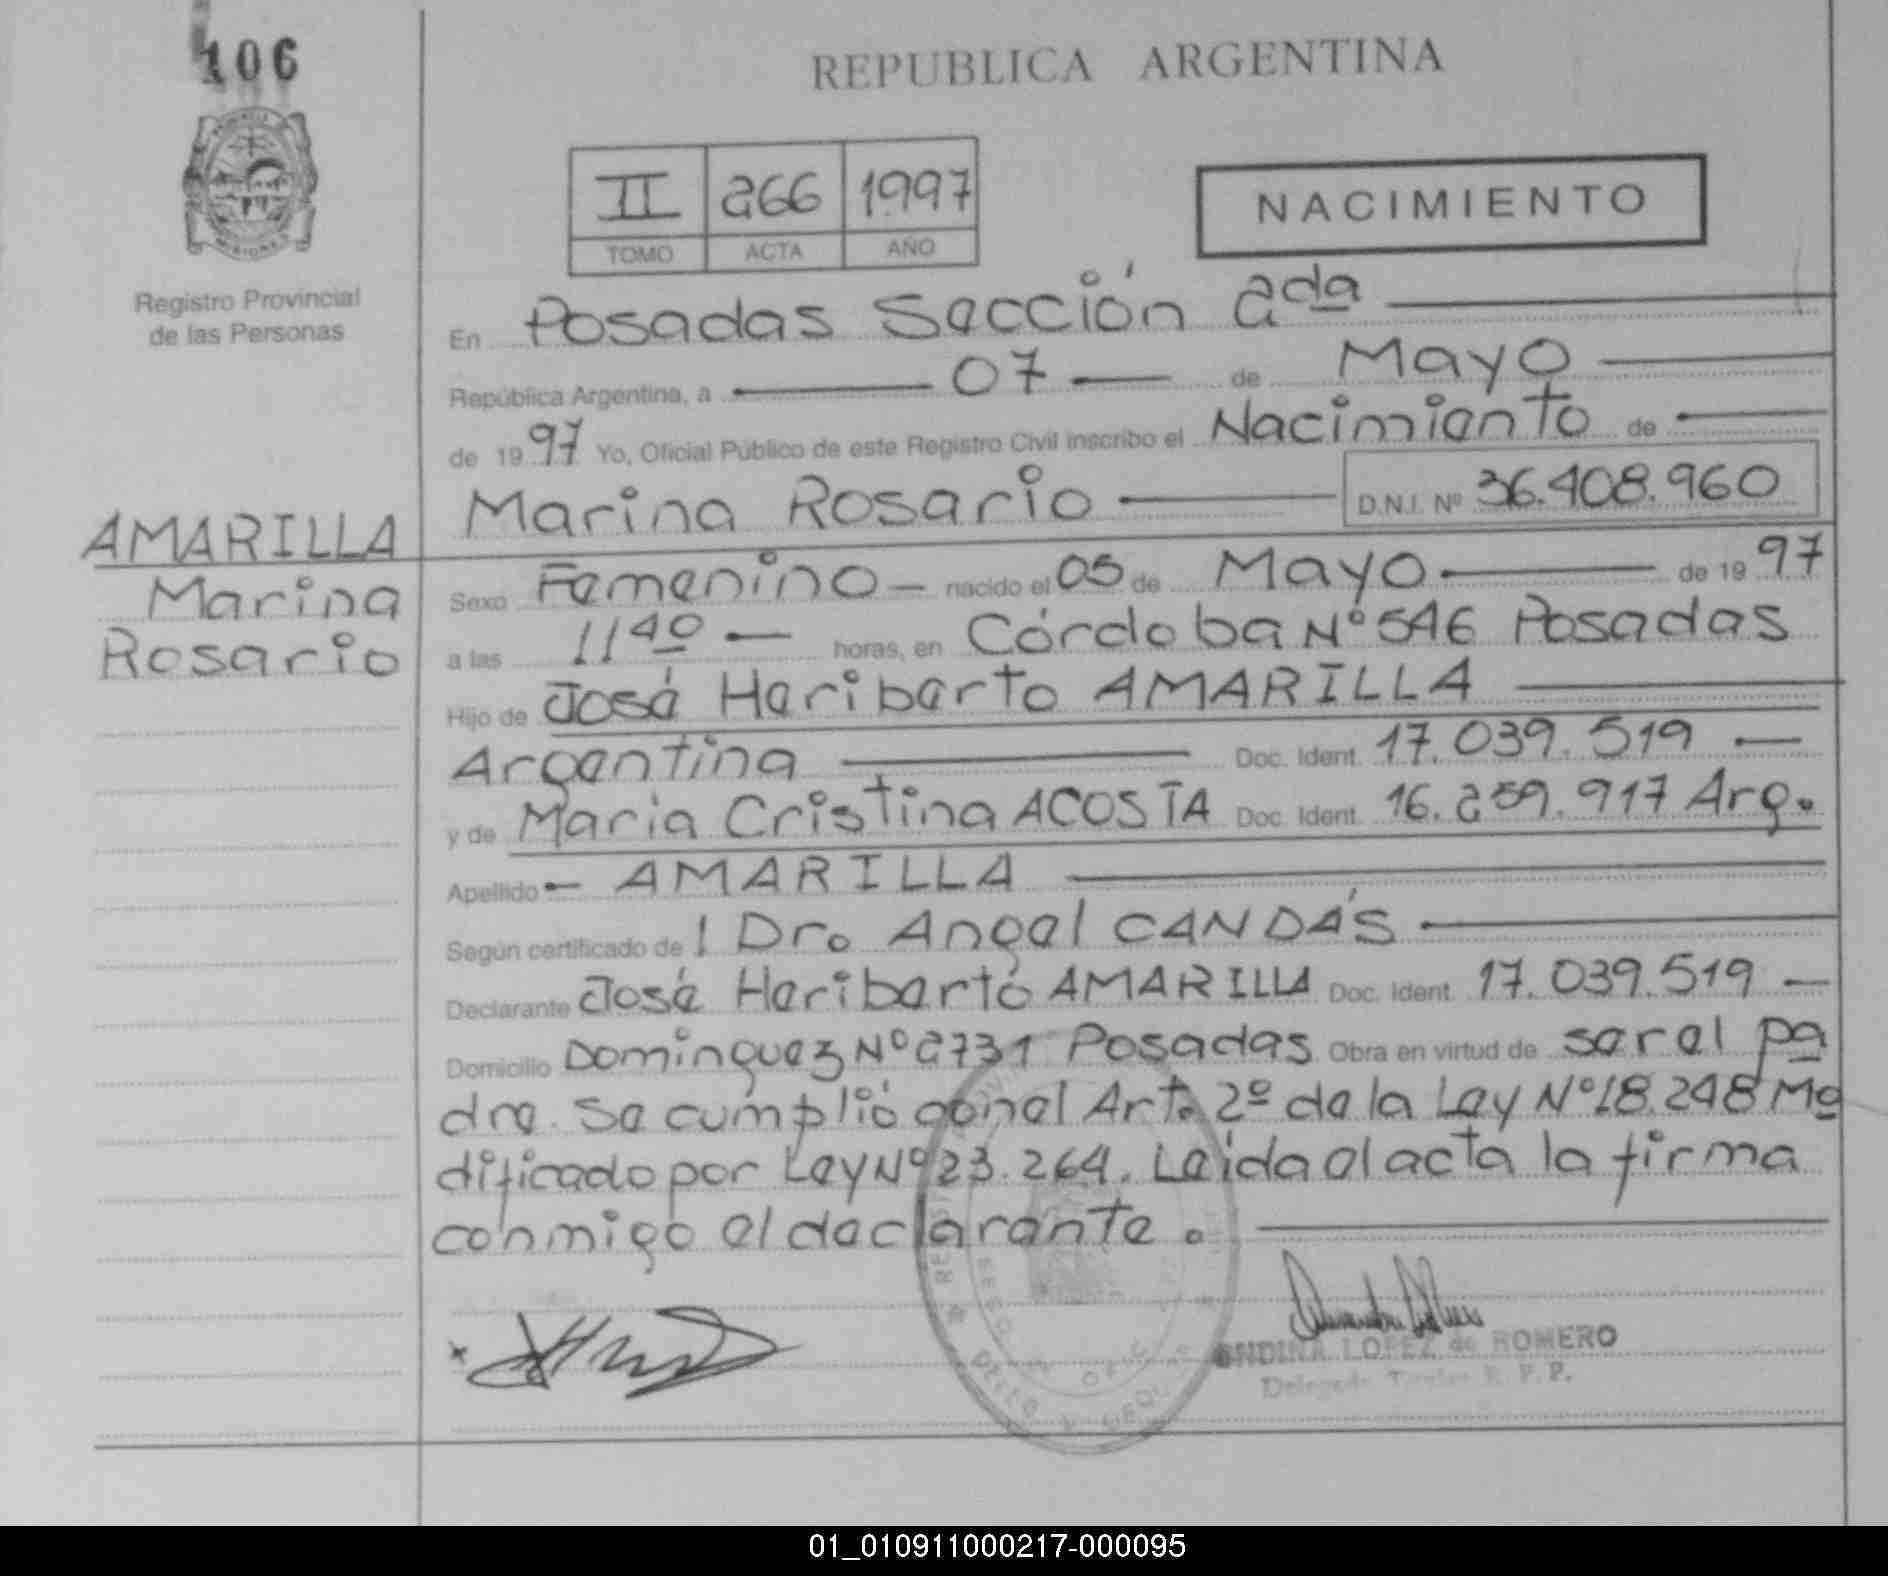 106
REPUBLICA ARGENTINA
II 266 1997
TOMO ACTA AÑO
NACIMIENTO
Registro Provincial
de las Personas
En Posadas Sección 2da
República Argentina, a 07 de Mayo
de 1997 Yo, Oficial Público de este Registro Civil inscribo el Nacimiento de
Marina Rosario D.N.I. Nº 36.408.960
AMARILLA
Marina
Rosario
Sexo Femenino nacido el 05 de Mayo de 1997
a las 11 40 horas, en Córdoba Nº 546 Posadas
Hijo de José Heriberto AMARILLA
Argentina Doc. Ident. 17.039.519
y de Maria Cristina ACOSTA Doc. Ident. 16.259.917 Arg.
Apellido AMARILLA
Según certificado de Dr. Angel CANDÁS
Declarante José Heriberto AMARILLA Doc. Ident. 17.039.519
Domicilio Dominguez Nº 2731 Posadas Obra en virtud de ser el pa
dre. Se cumplió con el Art. 2º de la Ley Nº 18.248 Mo
dificado por Ley Nº 23.264. Leida el acta la firma
conmigo el declarante.
LOPEZ de ROMERO
01_010911000217-000095